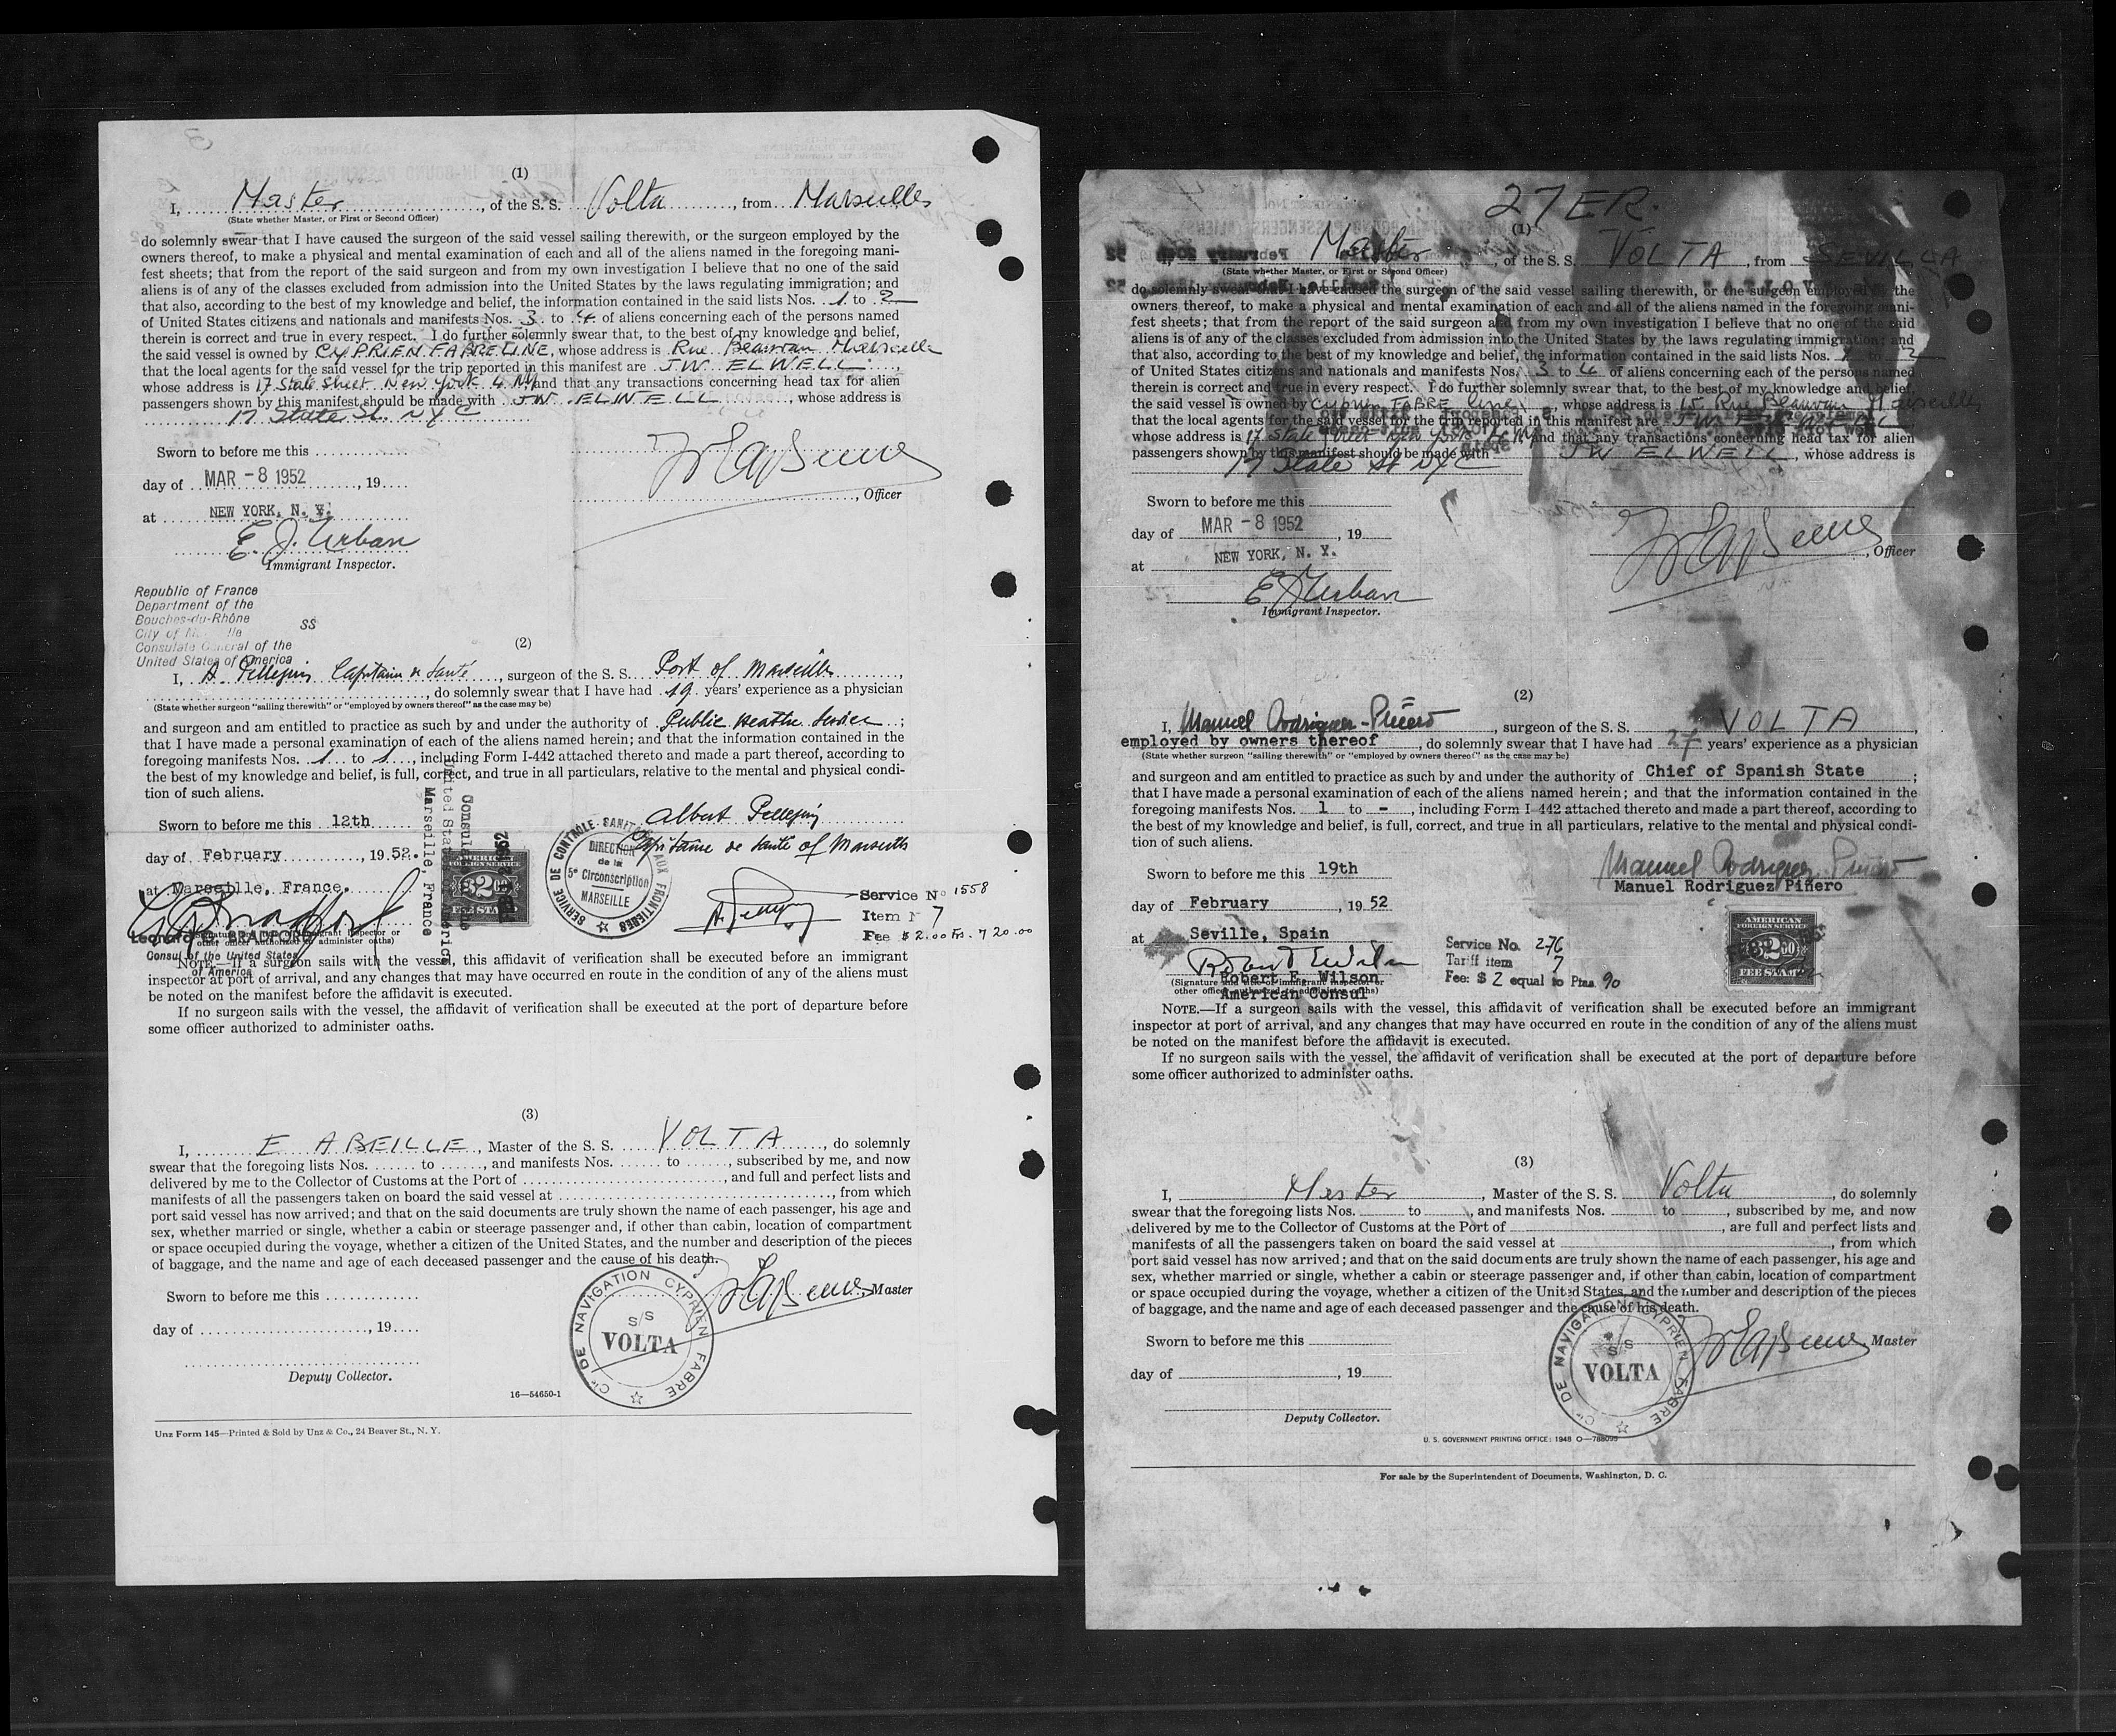 (1)
I, Master, of the S. S. Volta, from Marseilles
(State whether Master, or First or Second Officer)
do solemnly swear that I have caused the surgeon of the said vessel sailing therewith, or the surgeon employed by the
owners thereof, to make a physical and mental examination of each and all of the aliens named in the foregoing mani-
fest sheets; that from the report of the said surgeon and from my own investigation I believe that no one of the said
aliens is of any of the classes excluded from admission into the United States by the laws regulating immigration; and
that also, according to the best of my knowledge and belief, the information contained in the said lists Nos. 1 to 2
of United States citizens and nationals and manifests Nos. 3 to 4 of aliens concerning each of the persons named
therein is correct and true in every respect. I do further solemnly swear that, to the best of my knowledge and belief,
the said vessel is owned by CYPRIEN FABRE LINE, whose address is Rue Beauvau Marseille
that the local agents for the said vessel for the trip reported in this manifest are JW ELWELL,
whose address is 17 State Street New York 4 NY and that any transactions concerning head tax for alien
passengers shown by this manifest should be made with JW ELWELL, whose address is
17 State St. NYC
Sworn to before me this
day of MAR -8 1952, 19
, Officer
at NEW YORK, N. Y.
E. J. Urban
Immigrant Inspector.
Republic of France
Department of the
Bouches-du-Rhône
City of
SS
Consulate General of the
United States of America
(2)
I, A. Pellegrin Capitaine de Santé, surgeon of the S. S. Port of Marseille,
, do solemnly swear that I have had 19 years' experience as a physician
(State whether surgeon "sailing therewith" or "employed by owners thereof" as the case may be)
and surgeon and am entitled to practice as such by and under the authority of Public Health Service;
that I have made a personal examination of each of the aliens named herein; and that the information contained in the
foregoing manifests Nos. 1 to 1, including Form I-442 attached thereto and made a part thereof, according to
the best of my knowledge and belief, is full, correct, and true in all particulars, relative to the mental and physical condi-
tion of such aliens.
Sworn to before me this 12th
Albert Pellegrin
Capitaine de Santé of Marseille
day of February, 19 52.
at Marseille, France.
Marseille, France
AMERICAN
FOREIGN SERVICE
$2.00
FEE STAMP
SERVICE DE CONTROLE SANITAIRE AUX FRONTIERES
DIRECTION
de la
5e Circonscription
MARSEILLE
Service No 1558
Item No 7
Fee $ 2.00 Frs. 720.00
Leonard BRADFORD
Consul of the United States
of America
(Signature and title of immigrant inspector or
other officer authorized to administer oaths)
NOTE.—If a surgeon sails with the vessel, this affidavit of verification shall be executed before an immigrant
inspector at port of arrival, and any changes that may have occurred en route in the condition of any of the aliens must
be noted on the manifest before the affidavit is executed.
If no surgeon sails with the vessel, the affidavit of verification shall be executed at the port of departure before
some officer authorized to administer oaths.
(3)
I, E ABEILLE, Master of the S. S. VOLTA, do solemnly
swear that the foregoing lists Nos. to , and manifests Nos. to , subscribed by me, and now
delivered by me to the Collector of Customs at the Port of , and full and perfect lists and
manifests of all the passengers taken on board the said vessel at , from which
port said vessel has now arrived; and that on the said documents are truly shown the name of each passenger, his age and
sex, whether married or single, whether a cabin or steerage passenger and, if other than cabin, location of compartment
or space occupied during the voyage, whether a citizen of the United States, and the number and description of the pieces
of baggage, and the name and age of each deceased passenger and the cause of his death.
Sworn to before me this
, Master
day of , 19
Deputy Collector.
Cie DE NAVIGATION CYPRIEN FABRE
S/S
VOLTA
16—54650-1
Unz Form 145—Printed & Sold by Unz & Co., 24 Beaver St., N. Y.
27 ER.
(1)
I, Master, of the S. S. VOLTA, from SEVILLA
(State whether Master, or First or Second Officer)
do solemnly swear that I have caused the surgeon of the said vessel sailing therewith, or the surgeon employed by the
owners thereof, to make a physical and mental examination of each and all of the aliens named in the foregoing mani-
fest sheets; that from the report of the said surgeon and from my own investigation I believe that no one of the said
aliens is of any of the classes excluded from admission into the United States by the laws regulating immigration; and
that also, according to the best of my knowledge and belief, the information contained in the said lists Nos. 1 to 2
of United States citizens and nationals and manifests Nos. 3 to 4 of aliens concerning each of the persons named
therein is correct and true in every respect. I do further solemnly swear that, to the best of my knowledge and belief,
the said vessel is owned by Cyprien FABRE line, whose address is 15 Rue Beauvau Marseilles
that the local agents for the said vessel for the trip reported in this manifest are J.W. ELWELL,
whose address is 17 State Street New York 4 NY and that any transactions concerning head tax for alien
passengers shown by this manifest should be made with JW ELWELL, whose address is
17 State St NYC
Sworn to before me this
day of MAR -8 1952, 19
, Officer
at NEW YORK, N. Y.
E J Urban
Immigrant Inspector.
(2)
I, Manuel Rodriguez-Piñero, surgeon of the S. S. VOLTA,
employed by owners thereof, do solemnly swear that I have had 27 years' experience as a physician
(State whether surgeon "sailing therewith" or "employed by owners thereof" as the case may be)
and surgeon and am entitled to practice as such by and under the authority of Chief of Spanish State;
that I have made a personal examination of each of the aliens named herein; and that the information contained in the
foregoing manifests Nos. 1 to -, including Form I-442 attached thereto and made a part thereof, according to
the best of my knowledge and belief, is full, correct, and true in all particulars, relative to the mental and physical condi-
tion of such aliens.
Sworn to before me this 19th
Manuel Rodriguez Piñero
Manuel Rodriguez Piñero
day of February, 19 52
at Seville, Spain
Robert E. Wilson
Robert E. Wilson
American Consul
(Signature and title of immigrant inspector or
other officer authorized to administer oaths)
Service No. 276
Tariff item 7
Fee: $ 2 equal to Ptas. 90
AMERICAN
FOREIGN SERVICE
$2.00
FEE STAMP
NOTE.—If a surgeon sails with the vessel, this affidavit of verification shall be executed before an immigrant
inspector at port of arrival, and any changes that may have occurred en route in the condition of any of the aliens must
be noted on the manifest before the affidavit is executed.
If no surgeon sails with the vessel, the affidavit of verification shall be executed at the port of departure before
some officer authorized to administer oaths.
(3)
I, Master, Master of the S. S. Volta, do solemnly
swear that the foregoing lists Nos. to , and manifests Nos. to , subscribed by me, and now
delivered by me to the Collector of Customs at the Port of , are full and perfect lists and
manifests of all the passengers taken on board the said vessel at , from which
port said vessel has now arrived; and that on the said documents are truly shown the name of each passenger, his age and
sex, whether married or single, whether a cabin or steerage passenger and, if other than cabin, location of compartment
or space occupied during the voyage, whether a citizen of the United States, and the number and description of the pieces
of baggage, and the name and age of each deceased passenger and the cause of his death.
Sworn to before me this
, Master
day of , 19
Deputy Collector.
Cie DE NAVIGATION CYPRIEN FABRE
S/S
VOLTA
U. S. GOVERNMENT PRINTING OFFICE: 1948 O—788095
For sale by the Superintendent of Documents, Washington, D. C.